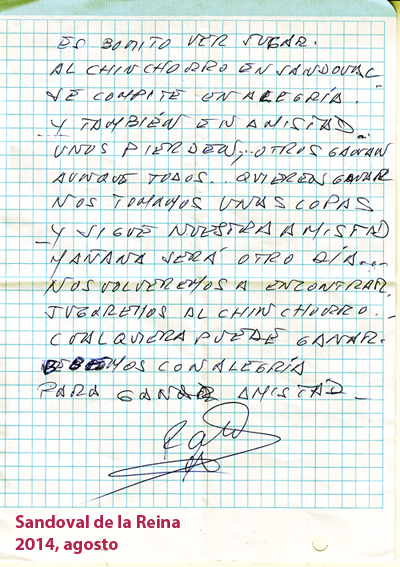 ES BONITO VER JUGAR.
AL CHINCHORRO EN SANDOVAL
SE COMPITE EN ALEGRÍA.
Y TAMBIÉN EN AMISTAD..
UNOS PIERDEN,.. OTROS GANAN
AUNQUE TODOS... QUIEREN GANAR
NOS TOMAMOS UNAS COPAS
Y SIGUE NUESTRA AMISTAD
MAÑANA SERÁ OTRO DÍA....
NOS VOLVEREMOS A ENCONTRAR,
JUGAREMOS AL CHINCHORRO..
CUALQUIERA PUEDE GANAR.
BEBEMOS CON ALEGRÍA
PARA GANAR AMISTAD
Sandoval de la Reina
2014, agosto